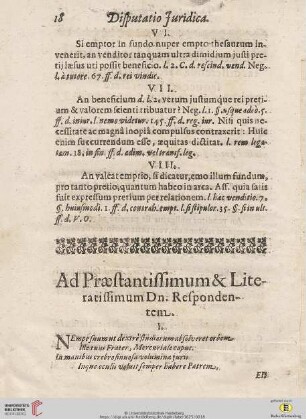 18 Disputatio Juridica.
VI.
Si emptor in fundo nuper empto thesaurum in-
venerit, an venditor tanquam ultra dimidium justi pre-
tij læsus uti possit beneficio. l. 2. C. d. rescind. vend. Neg.
l. à tutore. 67. ff. d. rei vindic.
VII.
An beneficium d. l. 2. verum justumque rei preti-
um & valorem scienti tribuatur? Neg. l. 1. §.
ff. d. iniur. l. nemo videtur. 145. ff. d. reg. iur. Nisi quis ne-
cessitate ac magnâ inopiâ compulsus contraxerit: Huic
enim succurrendum esse, æquitas dictitat. l. rem lega-
tam. 18. in fin. ff. d. adim. vel transf. leg.
VIII.
An valeat emptio, si dicatur, emo illum fundum,
pro tanto pretio, quantum habeo in arca. Aff. quia satis
fuit expressum pretium per relationem. l. hac venditio. 7.
§. huiusmodi. 1. ff. d. contrah. empt. l. si stipuler. 35. §. fin ult.
ff. d. V. O.
Ad Præstantissimum & Lite-
ratissimum Dn. Responden-
tem.
I.
Frater, Mercurialis caput:
In manibus crebro sinuosa volumina juris
Inque oculis semper habere Patrem.